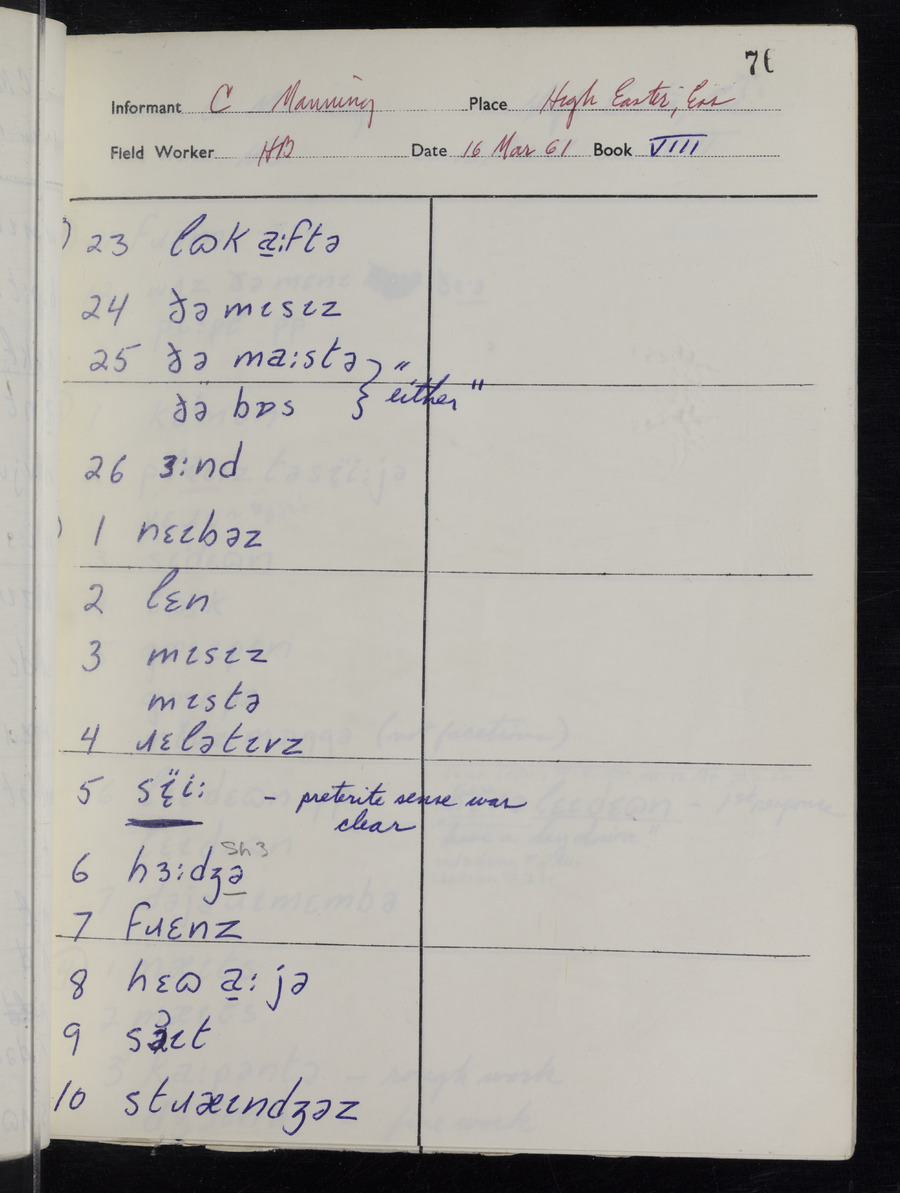 76
Informant C Manning Place High Easter, Ess
Field Worker HB Date 16 Mar 61 Book VIII
) 23 lɷk a̱:ftə
24 ðə mɪsɪz
25 ðə ma:stə } "
ðə bɒs } either"
26 ɜ:nd
) 1 nɛɪbəz
2 lɛn
3 mɪsɪz
mɪstə
4 ɹɛlətɪvz
5 sï̞i: – preterite sense was
clear
sh3
6 hɜ:dʒə
7 fɹɛnz
8 hɛɷ a̱: jə
9 sɪt
10 stɹæɪndʒəz